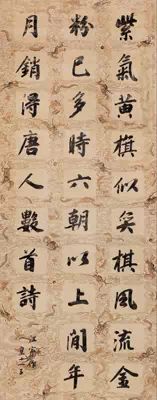 紫氣黃旗似奕棋風流金
粉已多時六朝以上閒年
月銷得唐人數首詩
江寧作
皇十一子